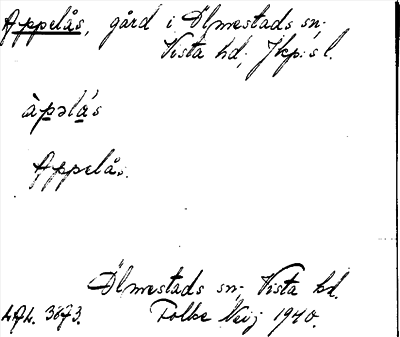 Appelås, gård i Ölmestads sn;
Vista hd; Jkp:s l.
àpəlás
Appelås.
Ölmestads sn; Vista hd.
Folke Neij 1940.